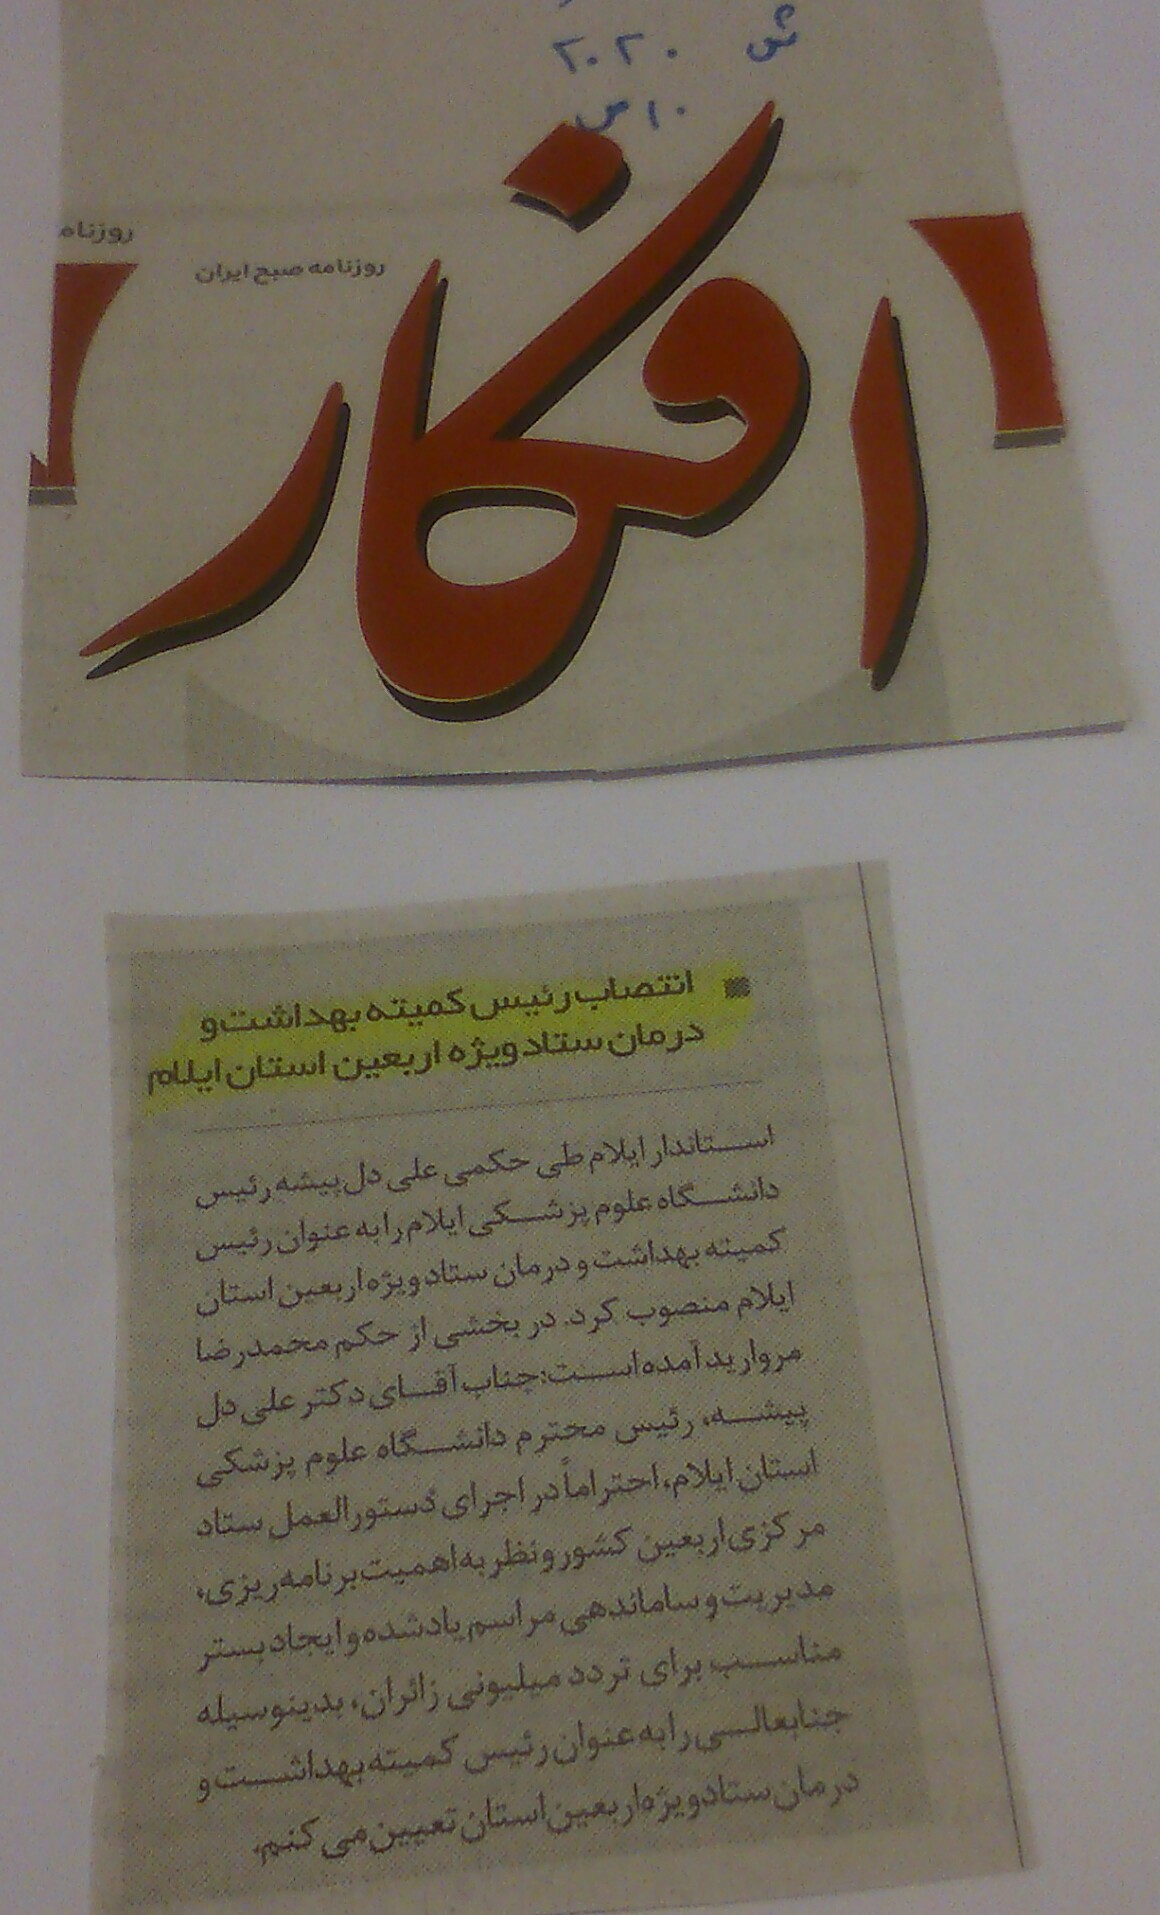 ش ۲۰۲۰
ص ۱۰
روزنام
روزنامه صبح ایران
افکار
انتصاب رئیس کمیته بهداشت و
درمان ستاد ویژه اربعین استان ایلام
استاندار ایلام طی حکمی علی دل پیشه رئیس
دانشگاه علوم پزشکی ایلام را به عنوان رئیس
کمیته بهداشت و درمان ستاد ویژه اربعین استان
ایلام منصوب کرد. در بخشی از حکم محمدرضا
مروارید آمده است: جناب آقای دکتر علی دل
پیشه، رئیس محترم دانشگاه علوم پزشکی
استان ایلام، احتراماً در اجرای دستورالعمل ستاد
مرکزی اربعین کشور و نظر به اهمیت برنامه ریزی،
مدیریت و ساماندهی مراسم یاد شده و ایجاد بستر
مناسب برای تردد میلیونی زائران، بدینوسیله
جنابعالی را به عنوان رئیس کمیته بهداشت و
درمان ستاد ویژه اربعین استان تعیین می کنم.